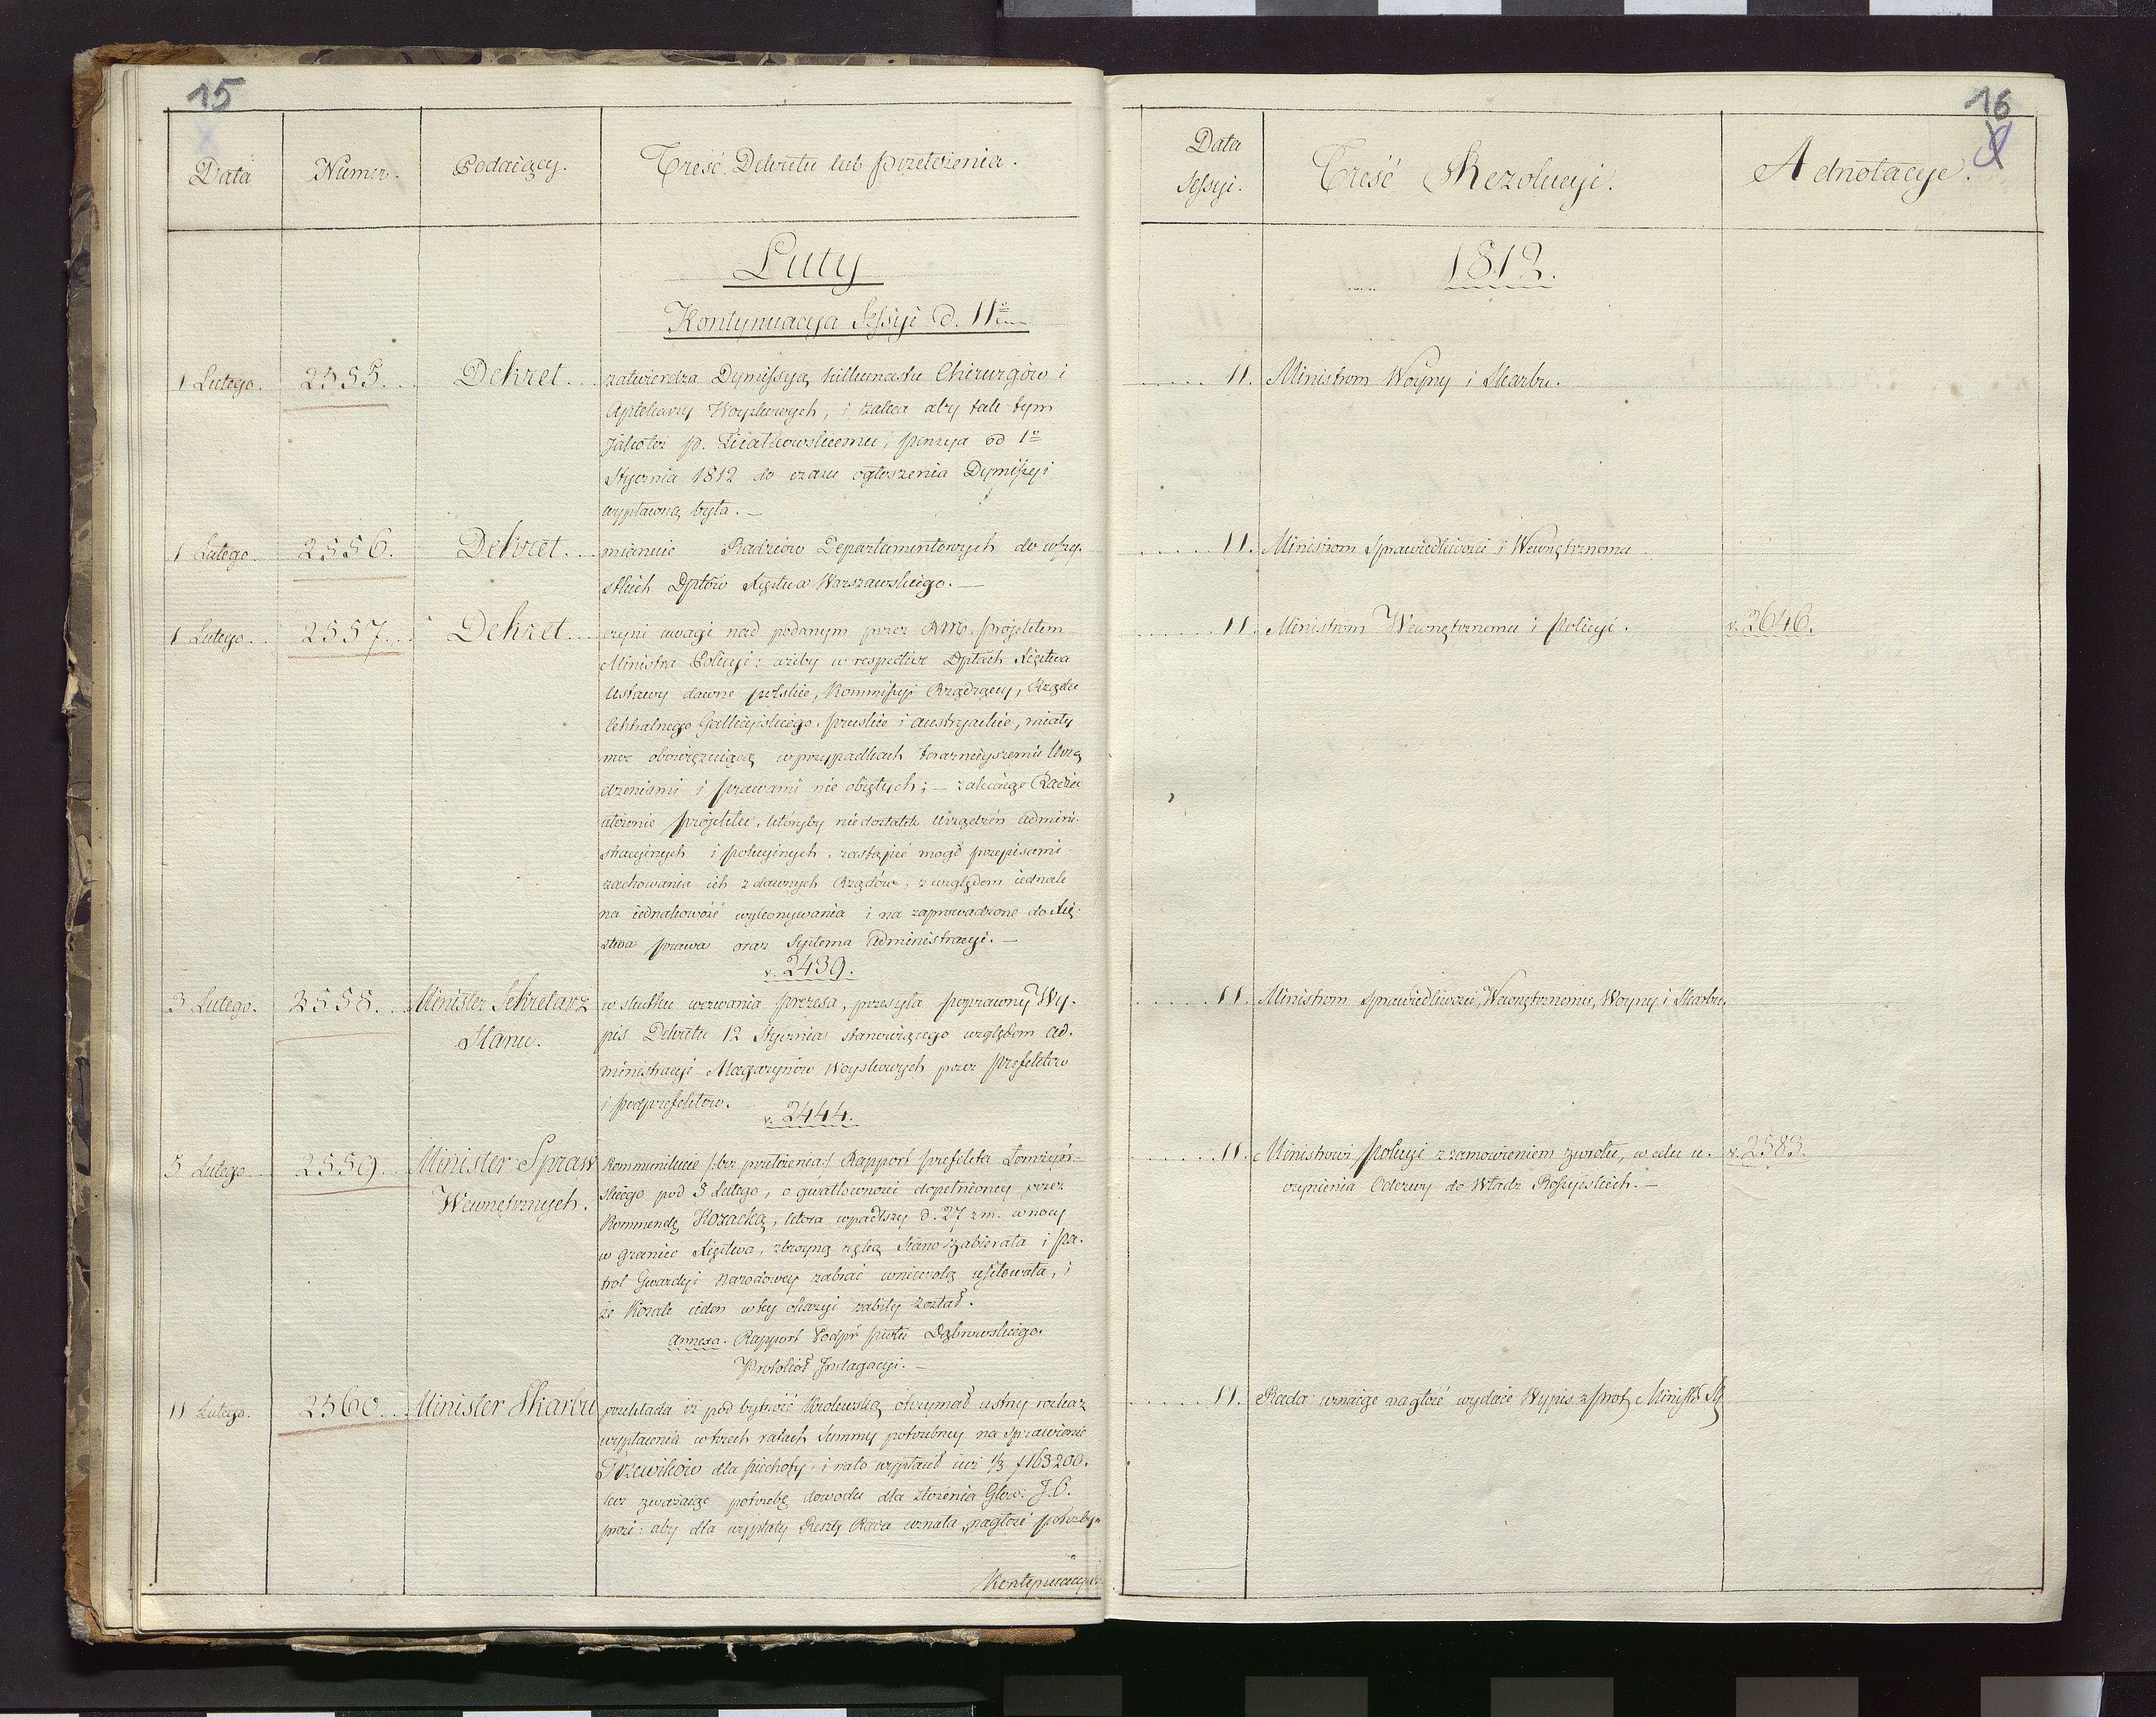 15
Data
Numer.
Podaiący.
Treść Dekretu lub przełożenia.
Luty
Kontynuacya Sessyi d. 11º
1 Lutego.
2555.
Dekret.
zatwierdza Dymissyą kilkunastu Chirurgów i
Aptekarzy Woyskowych, i zaleca aby tak tym
jakoteż p. pensya od 1º
Stycznia 1812 do czasu ogłoszenia Dymissyi
wypłacona była. —
1 Lutego.
2556.
Dekret.
mianuie Radzców Departamentowych do wszy-
stkich Dptów Xięstwa Warszawskiego. —
1 Lutego.
2557.
Dekret
czyni uwagi nad podanym przez RM. projektem
Ministra Policyi: ażeby w respective Dptach Xięstwa
Ustawy dawne polskie, Kommissyi Rządzącey, Rządu
Centralnego Gallicyiskiego, pruskie i austryackie, miały
moc obowięzuiącą w przypadkach teraznieyszemi Urzą
dzeniami i prawami nie obiętych; — zalecaiąc Radzie
ułożenie projektu, któryby niedostatek Urządzeń admini-
stracyinych i policyinych, zastąpić mógł przepisami
zachowania ich z dawnych Rządów, z względem iednak
na iednakowość wykonywania i na zaprowadzone do Xię-
ztwa prawa oraz Systema administracyi. —
v. 2439.
3 Lutego.
2558.
Minister Sekretarz
Stanu.
w skutku wezwania Prezesa, przesyła poprawny Wy-
pis Dekretu 12 Stycznia stanowiącego względem ad-
ministracyi Magazynów Woyskowych przez Prefektów
i podprefektów.
v. 2444.
5 Lutego
2559.
Minister Spraw
Wewnętrznych.
Kommunikuie /:bez przełożenia:/ Rapport prefekta Łomżyń-
skiego pod 3 Lutego, o gwałtowności dopełnioney przez
Kommendę Kozacką, która wpadłszy d. 27 z.m. w nocy
w granice Xięstwa, zbroyną ręką Siano zabierała i Pa-
trol Gwardyi Narodowey zabrać w niewolą usiłowała, i
że Kozak ieden w tey okazyi zabity został.
Annexa. Rapport Podpr: pwtu Dąbrowskiego.
Protokół Indagacyi. —
11 Lutego.
2560.
Minister Skarbu
przekłada iż pod bytność Królewską otrzymał ustny rozkaz
wypłacenia w trzech ratach Summy potrzebney na Sprawienie
Trzewików dla piechoty i na to wypłacił iuż 1/3 f 163200.
lecz zważaiąc potrzebę dowodu dla złożenia Głow: J. O.
prosi: aby dla wypłaty Reszty Rada uznała „nagłość potrzby„
Kontynuacya
16
Data
Sessyi.
Treść Rezolucyi.
Adnotacye.
1812.
11. Ministrom Woyny i Skarbu.
11. Ministrom Sprawiedliwości i Wewnętrznemu
11. Ministrom Wewnętrznemu i Policyi.
v. 2646.
11. Ministrom Sprawiedliwości, Wewnętrznemu, Woyny i Skarbu.
11. Ministrowi Policyi z zamówieniem zwrotu, w celu u-
czynienia Odezwy do Władz Rossyiskich. —
v. 2583.
11. Rada uznaiąc nagłość wydaie Wypis z Prot.